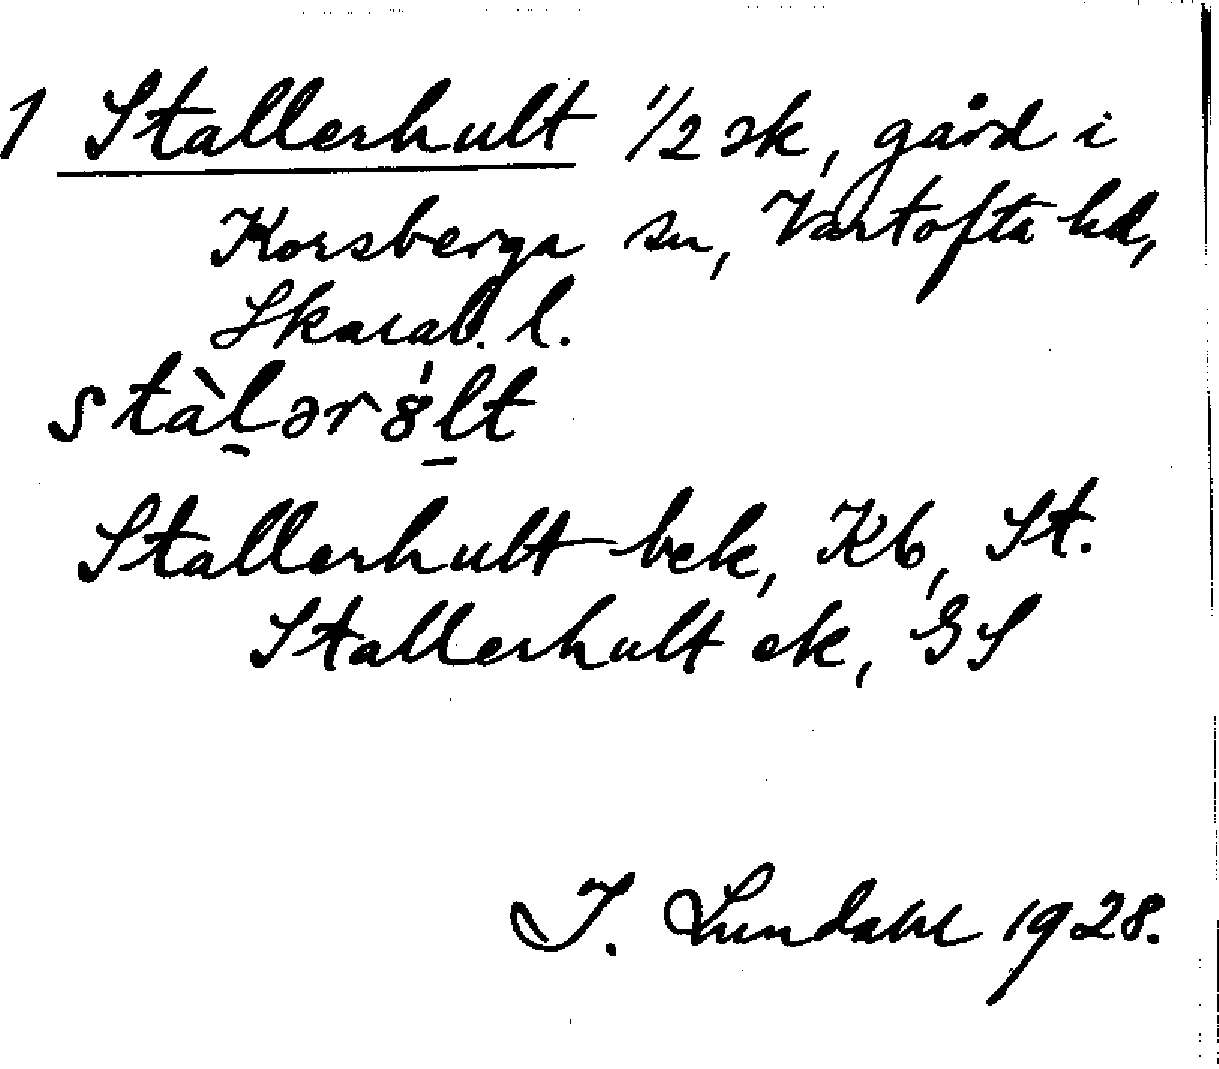 1 Stallerhult 1/2 sk, gård i
Korsberga sn, Vartofta hd,
Skarab. l.
stàl̠ərȣ́l̠t
Stallerhult bek, Kb, St.
Stallerhult ek, GS
I. Lundahl 1928.